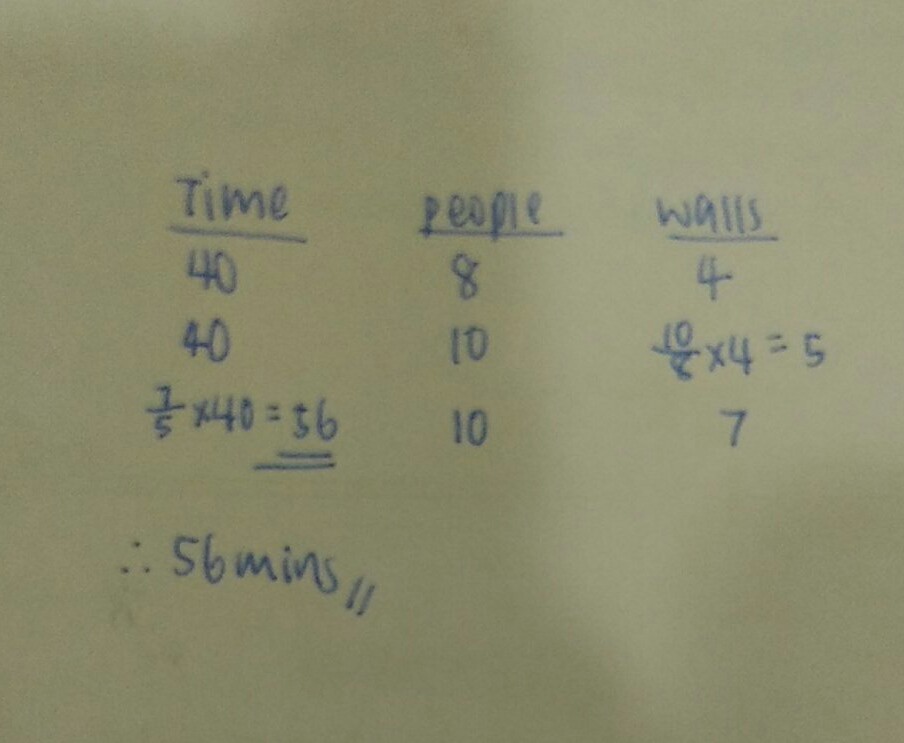 Time people walls
40 8 4
40 10 10/8 × 4 = 5
7/5 × 40 = 56 10 7
∴ 56 mins //